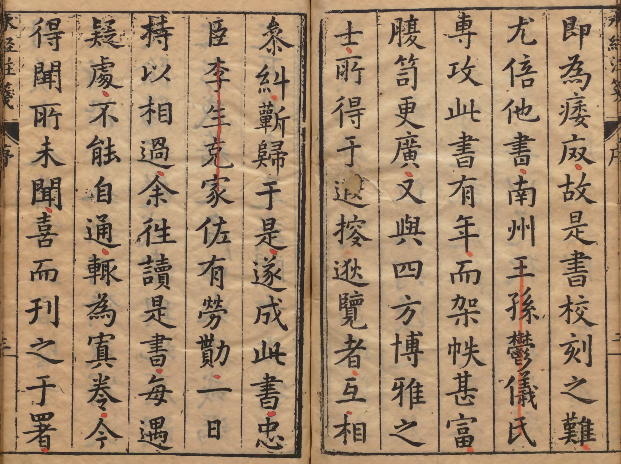 水經注箋 序
即為痿故是書校刻之難
尤倍他書南州王孫鬱儀氏
專攻此書有年而架帙甚富
腹笥更廣又與四方博雅之
士所得于遐搜逖覽者互相
叅糾蘄歸于是遂成此書忠
臣李生克家佐有勞勩一日
持以相過余往讀是書每遇
疑處不能自通輒為寘卷今
得聞所未聞喜而刊之于署
水經注箋 序 三